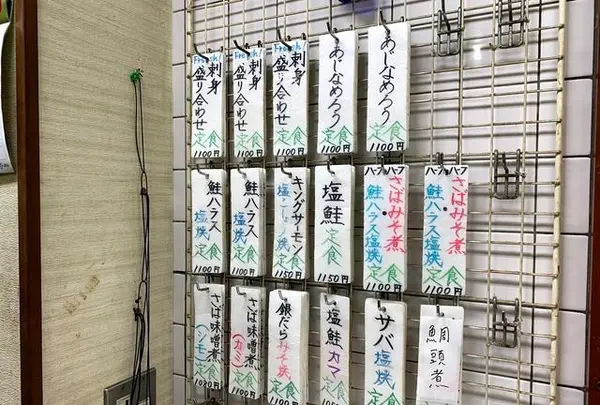 Fresh!
刺身
盛り合わせ
定食
1100円
Fresh!
刺身
盛り合わせ
定食
1100円
Fresh!
刺身
盛り合わせ
定食
1100円
あじなめろう
定食
1100円
あじなめろう
定食
1100円
鮭ハラス
塩焼
定食
1100円
鮭ハラス
塩焼
定食
1100円
キングサーモン
塩こうじ焼
定食
1150円
塩鮭
定食
1150円
ハーフハーフ
さばみそ煮・
鮭ハラス塩焼
定食
1100円
ハーフハーフ
さばみそ煮・
鮭ハラス塩焼
定食
1100円
さば味噌煮
(シモ)
定食
さば味噌煮
(カミ)
定食
銀だらみそ焼
定食
塩鮭カマ
定食
サバ塩焼
定食
鯛頭煮